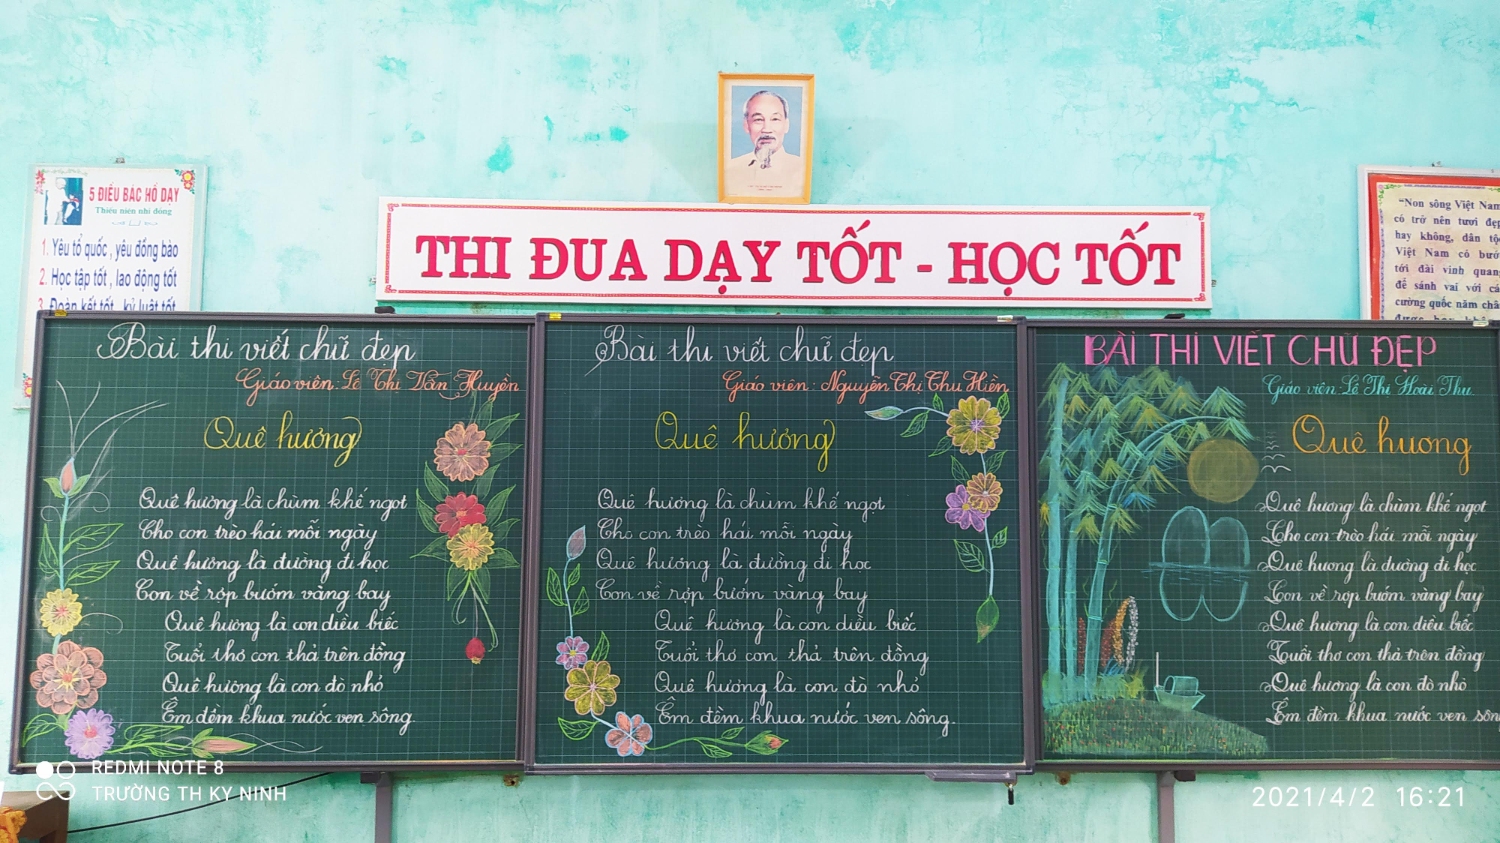 5 ĐIỀU BÁC HỒ DẠY
Thiếu niên nhi đồng
1. Yêu tổ quốc, yêu đồng bào
2. Học tập tốt, lao động tốt
3. Đoàn kết tốt, kỷ luật tốt
THI ĐUA DẠY TỐT - HỌC TỐT
"Non sông Việt Nam
có trở nên tươi đẹp
hay không, dân tộc
Việt Nam có bước
tới đài vinh quang
để sánh vai với các
cường quốc năm châu
được hay không
Bài thi viết chữ đẹp
Giáo viên: Lê Thị Vân Huyền
Quê hương
Quê hương là chùm khế ngọt
Cho con trèo hái mỗi ngày
Quê hương là đường đi học
Con về rợp bướm vàng bay
Quê hương là con diều biếc
Tuổi thơ con thả trên đồng
Quê hương là con đò nhỏ
Êm đềm khua nước ven sông
Bài thi viết chữ đẹp
Giáo viên: Nguyễn Thị Thu Hiền
Quê hương
Quê hương là chùm khế ngọt
Cho con trèo hái mỗi ngày
Quê hương là đường đi học
Con về rợp bướm vàng bay
Quê hương là con diều biếc
Tuổi thơ con thả trên đồng
Quê hương là con đò nhỏ
Êm đềm khua nước ven sông.
BÀI THI VIẾT CHỮ ĐẸP
Giáo viên Lê Thị Hoài Thu
Quê hương
Quê hương là chùm khế ngọt
Cho con trèo hái mỗi ngày
Quê hương là đường đi học
Con về rợp bướm vàng bay
Quê hương là con diều biếc
Tuổi thơ con thả trên đồng
Quê hương là con đò nhỏ
Êm đềm khua nước ven sôn
REDMI NOTE 8
TRƯỜNG TH KY NINH
2021/4/2 16:21